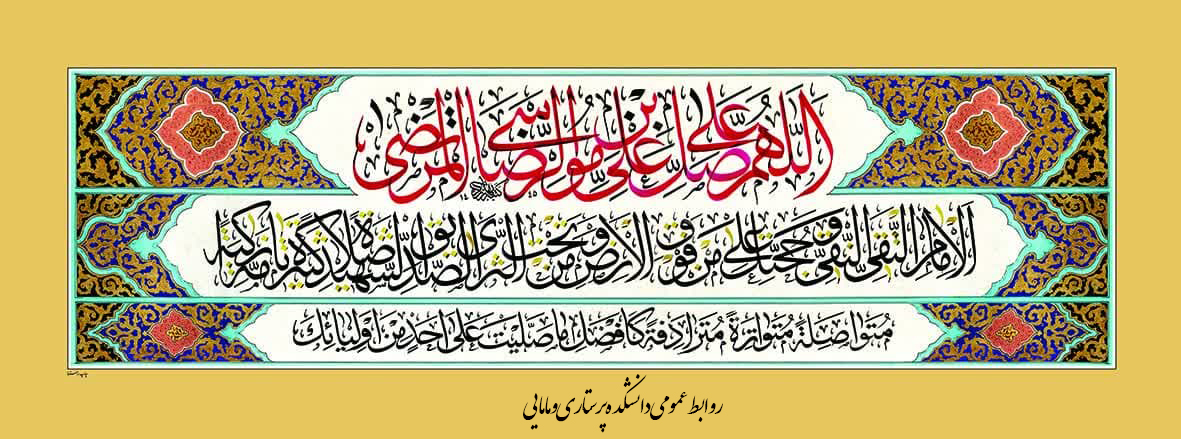 اللهم صل على علي بن موسى الرضا المرتضى
الامام التقي النقي و حجتك على من فوق الارض و من تحت الثرى الصديق الشهيد صلاة كثيرة تامة زاكية
متواصلة متواترة مترادفة كافضل ما صليت على احد من اوليائك
روابط عمومی دانشکده پرستاری و مامایی